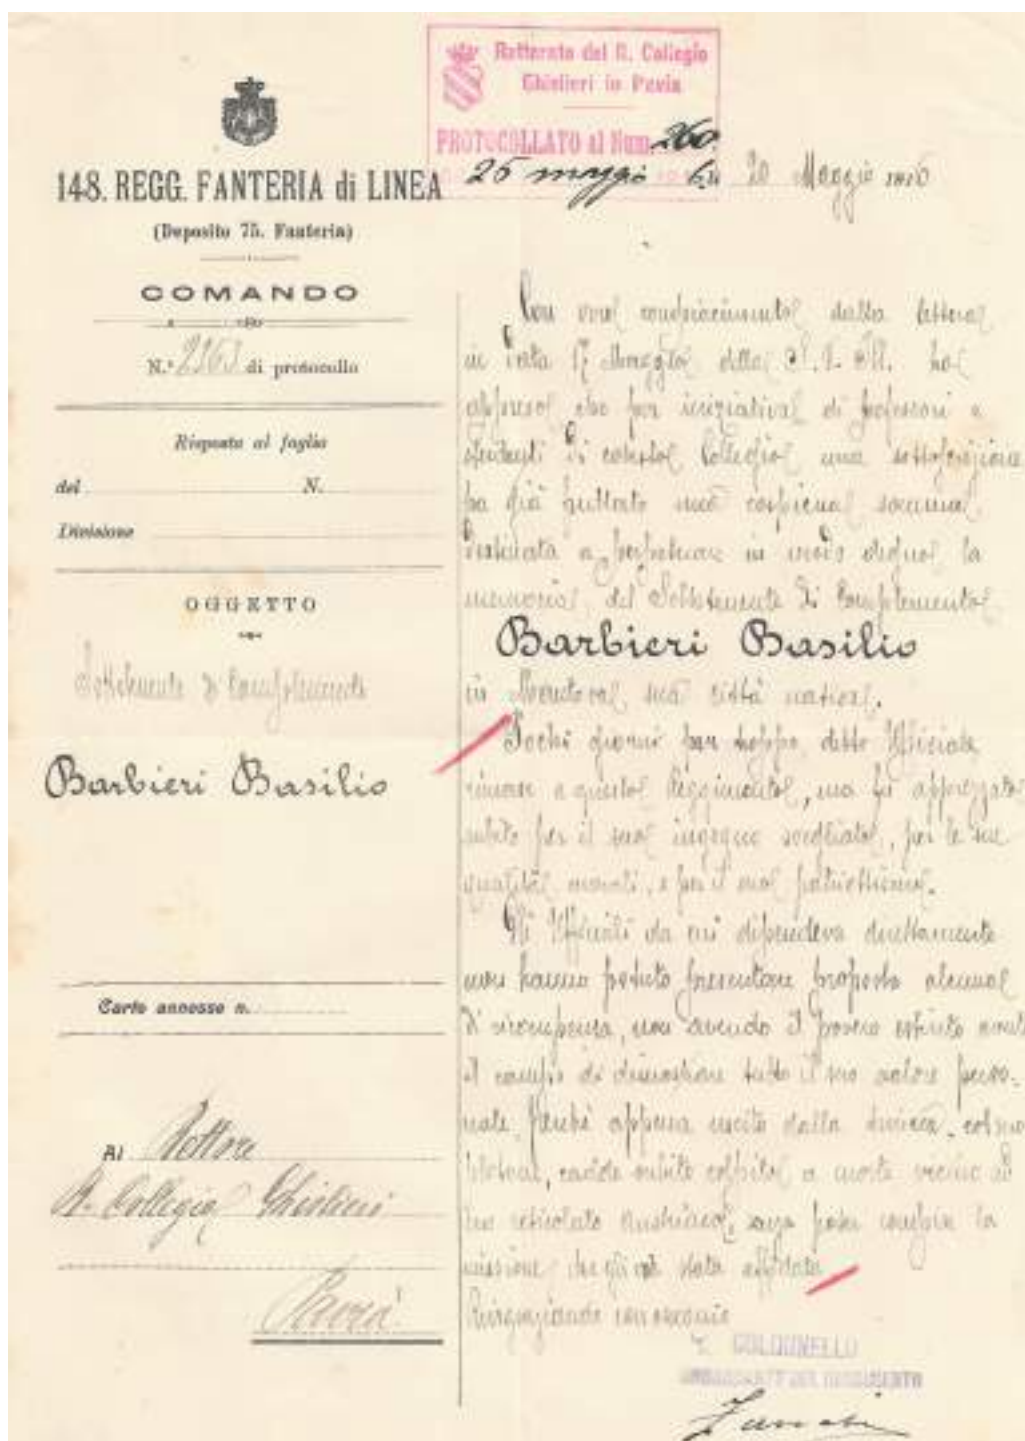 Rettorato del R. Collegio
Ghislieri in Pavia
PROTOCOLLATO al Num. 260.
25 maggio
148. REGG. FANTERIA di LINEA
20 Maggio 1916
(Deposito 75. Fanteria)
COMANDO
N.° 2363 di protocollo
Risposta al foglio
del N.
Divisione
OGGETTO
Sottotenente di Complemento
Barbieri Basilio
Carte annesse n.
Al Rettore
R. Collegio Ghislieri
Pavia
Con vivo compiacimento dalla lettera
in data 17 Maggio della S. V. Ill. ho
appreso che per iniziativa di professori e
studenti di codesto Collegio una sottoscrizione
ha già fruttato una cospicua somma
destinata a perpetuare in modo degno la
memoria del Sottotenente di Complemento
Barbieri Basilio
in sua città natia.
Pochi giorni pur troppo detto Ufficiale
rimase a questo Reggimento, ma fu apprezzato
subito per il suo ingegno svegliato, per le sue
qualità morali, e per il suo patriottismo.
Gli Ufficiali da cui dipendeva direttamente
non hanno potuto presentare proposta alcuna
di ricompensa, non avendo il povero estinto avuto
il campo di dimostrare tutto il suo valore perso-
nale, perchè appena uscito dalla trincea, col suo
plotone, cadde subito colpito a morte vicino ad
un reticolato austriaco, senza poter compiere la
missione che gli era stata affidata
Ringraziando con ossequio
COLONNELLO
COMANDANTE DEL REGGIMENTO